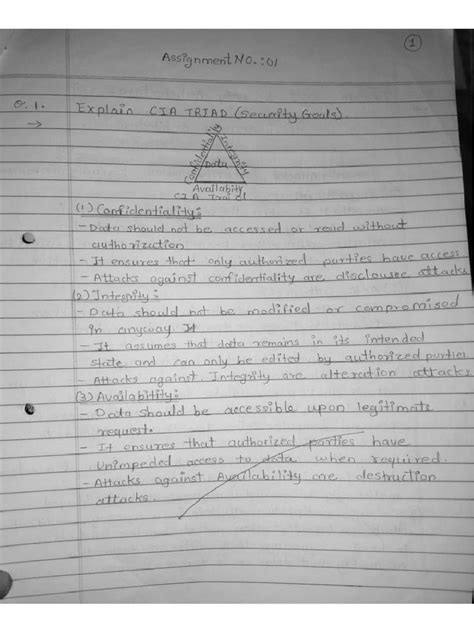 1
Assignment No. : 01
Q. 1. Explain CIA TRIAD (Security Goals).
→
Confidentiality
Integrity
Data
Availabity
CIA Traid
(1) Confidentiality :
- Data should not be accessed or read without
authorization
- It ensures that only authorized parties have access
- Attacks against confidentiality are disclouse attacks
(2) Integrity :
- Data should not be modified or compromised
in anyway. It
- It assumes that data remains in its intended
state and can only be edited by authorized parties
- Attacks against Integrity are alteration attacks
(3) Availabitity :
- Data should be accessible upon legitimate
request.
- It ensures that authorized parties have
Unimpeded access to data when required.
- Attacks against Availability are destruction
attacks.